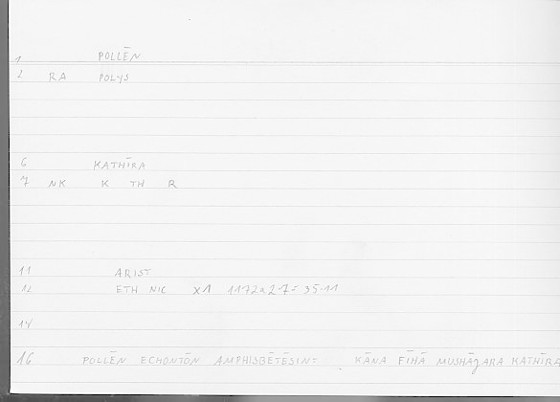 1 POLLĒN
2 RA POLYS
6 KATHĪRA
7 NK K TH R
11 ARIST
12 ETH NIC X1 1172a27 = 35.11
14
16 POLLĒN ECHONTŌN AMPHISBĒTĒSIN: KĀNA FĪHĀ MUSHĀJARA KATHĪRA